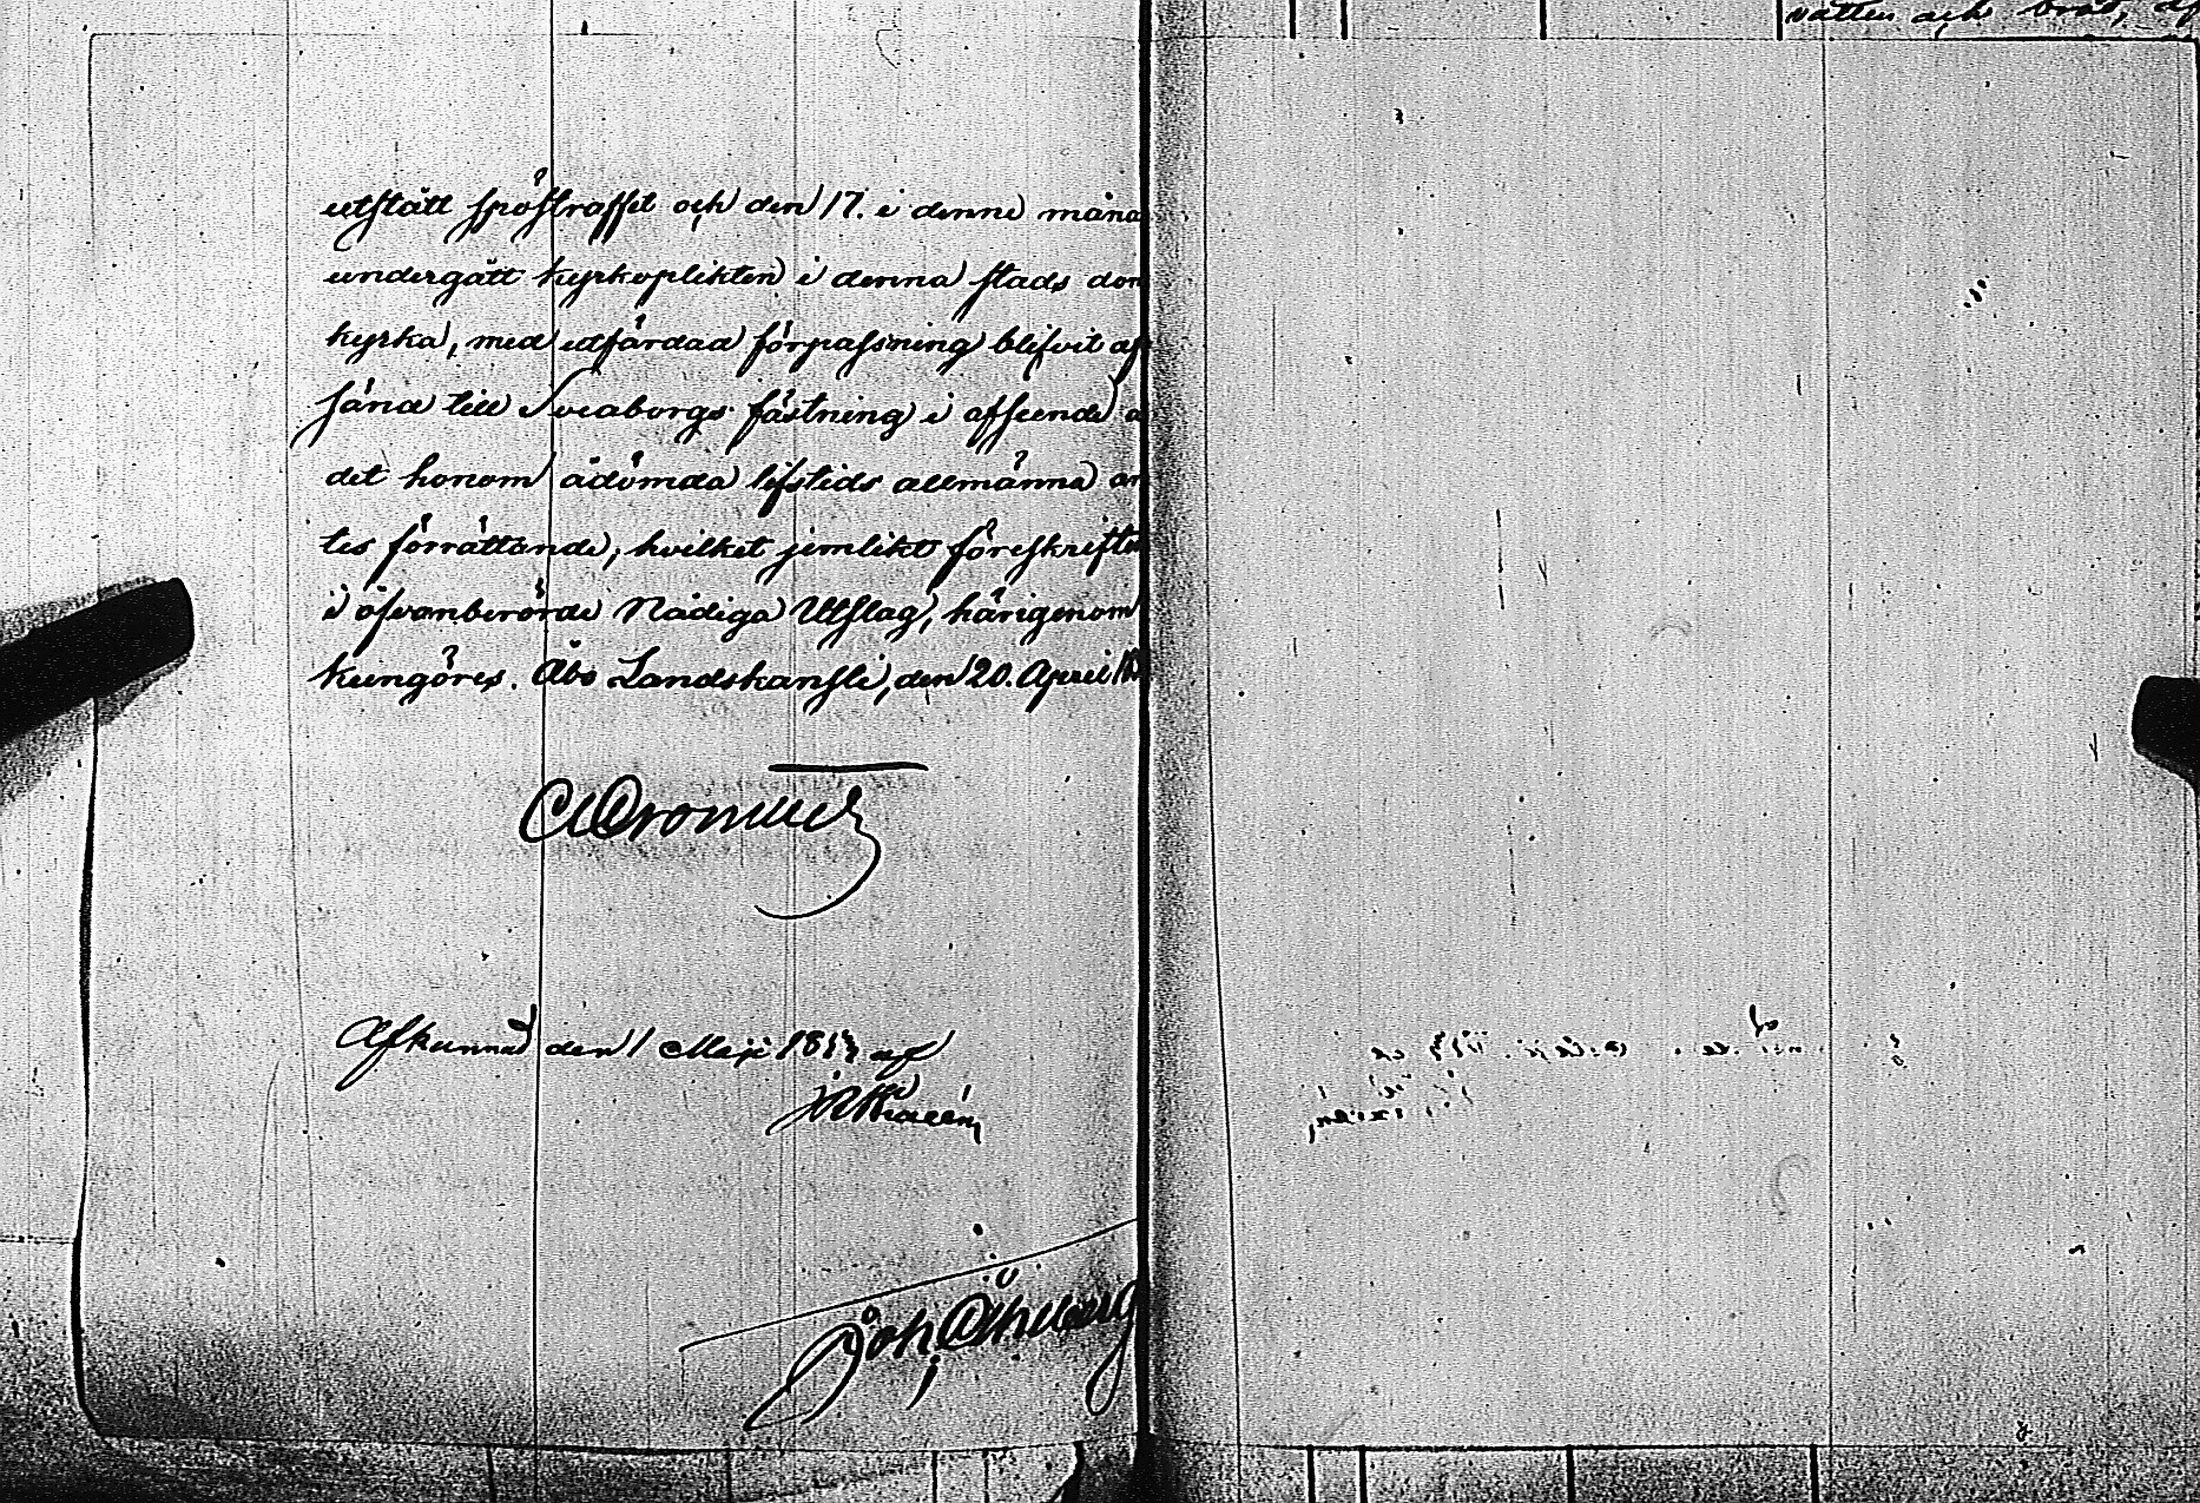 vatten och bröd, af
utstått spöstraffet och den 17. i denne måna
undergått kyrkoplikten i denna stads dom
kyrka, med utfärdad förpassning blifvit af
färd till Sveaborgs fästning i afseende å
det honom ådömda lifstids allmänna ar
tes förrättande, hvilket jemlikt föreskriften
i ofvanberörde Nådiga Utslag, härigenom
kungöres. Åbo Landskansli, den 20. April 18
Afkunnad den 1 Maji 1853 af
Joh. Öhberg